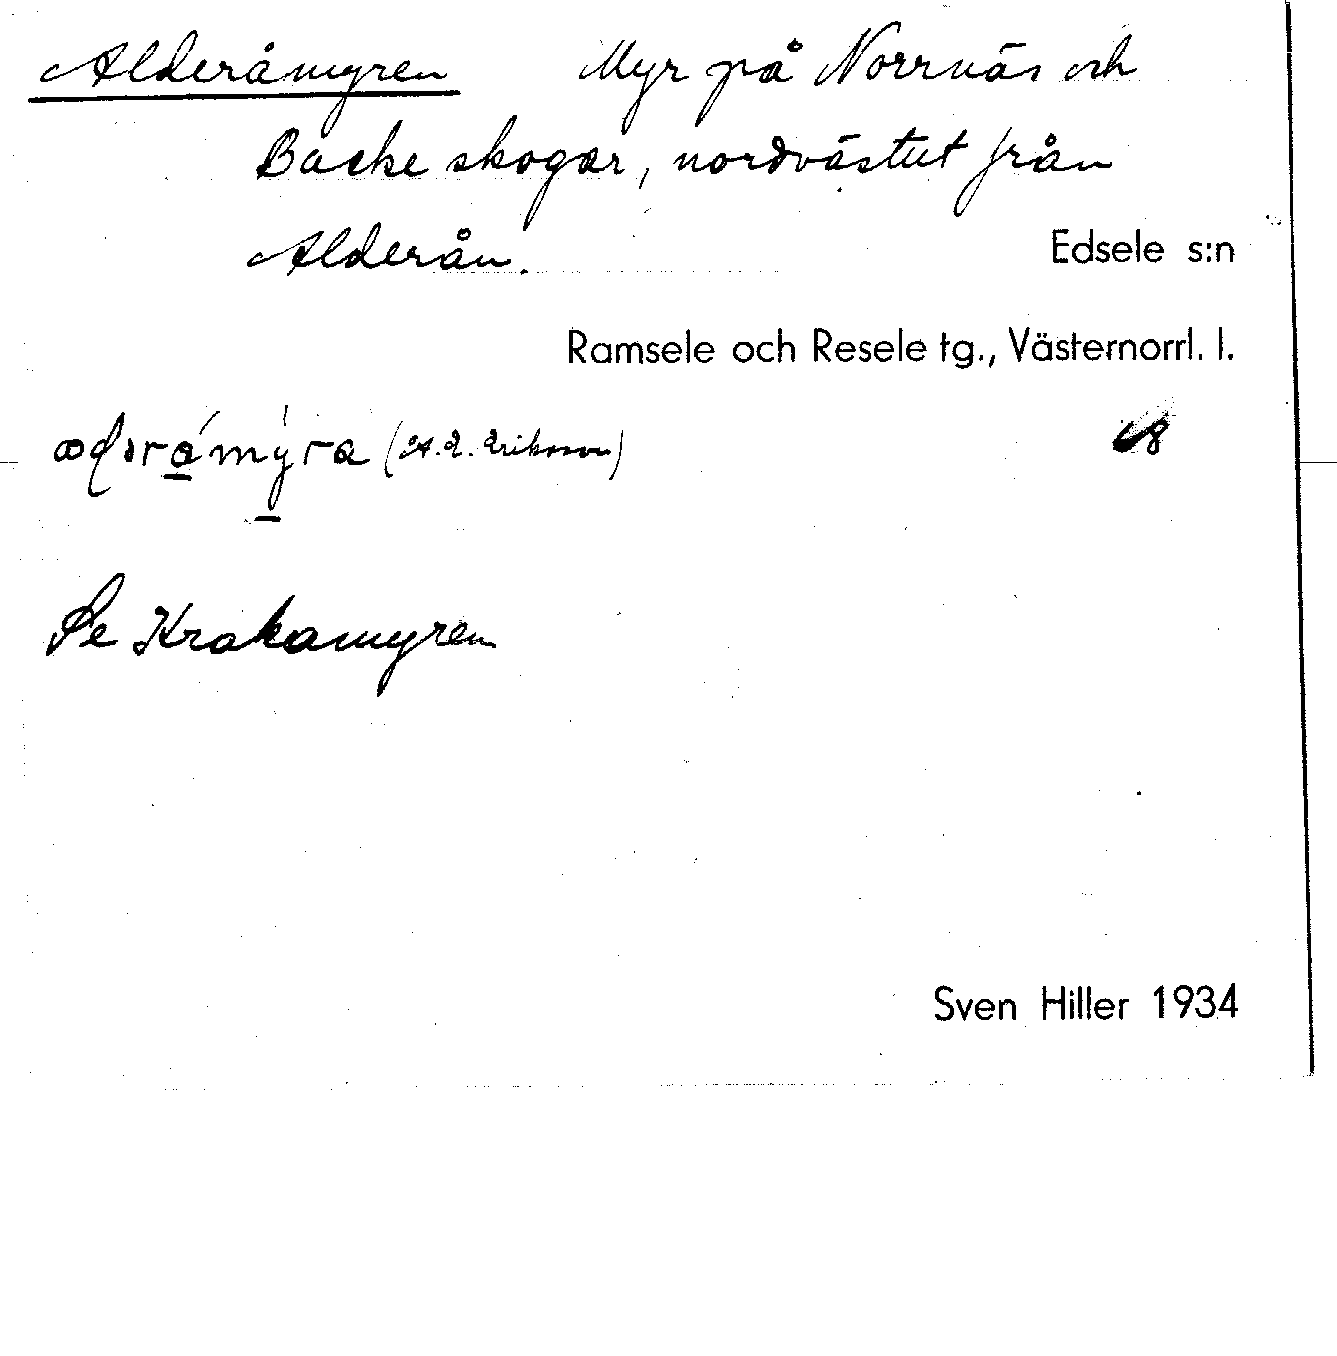 Alderåmyren Myr på Norrnäs och
Backe skogar, nordvästut från
Alderån.
Edsele s:n
Ramsele och Resele tg., Västernorrl. l.
(A. E. Eriksson)
Se Krakamyren
Sven Hiller 1934